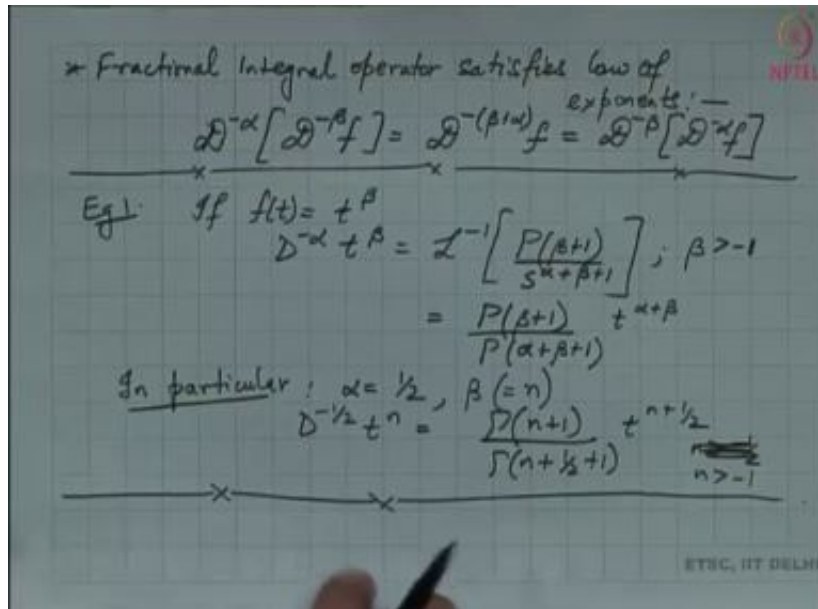 * Fractional Integral operator satisfies law of
exponents: —
𝒟^{-α}[𝒟^{-β}f] = 𝒟^{-(β+α)}f = 𝒟^{-β}[𝒟^{-α}f]
Eg 1. If f(t) = t^β
D^{-α} t^β = ℒ^{-1}[Γ(β+1)/s^{α+β+1}] ; β > -1
= Γ(β+1)/Γ(α+β+1) t^{α+β}
In particular : α = 1/2, β (= n)
D^{-1/2} t^n = Γ(n+1)/Γ(n+1/2+1) t^{n+1/2}
n > -1
NPTEL
ETSC, IIT DELHI